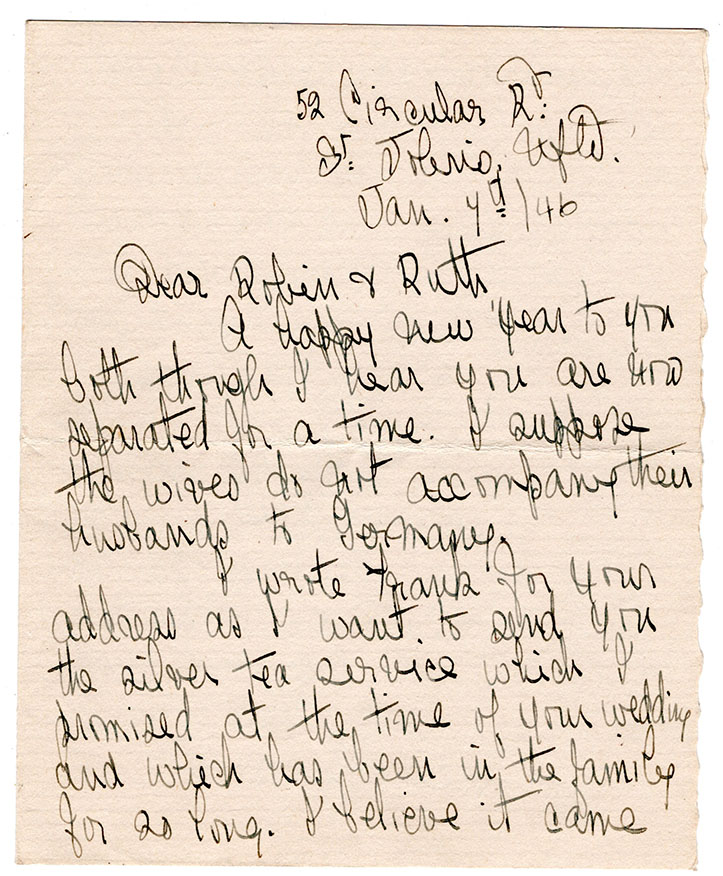 52 Circular Rd:
St: John's, Nfld.
Jan. 7th/46
Dear Robin & Ruth
A happy New Year to you
both though I hear you are now
separated for a time. I suppose
the wives do not accompany their
husbands to Germany.
I wrote Frank for your
address as I want to send you
the silver tea service which I
promised at the time of your wedding
and which has been in the family
for so long. I believe it came